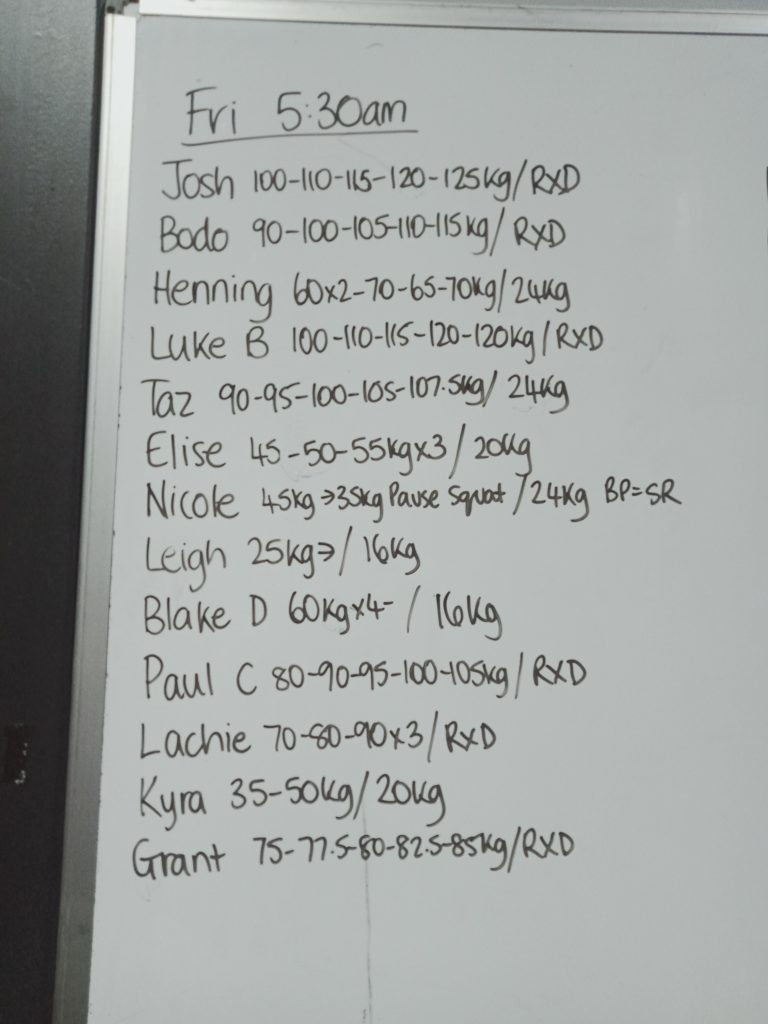 Fri 5:30am
Josh 100-110-115-120-125kg/RXD
Bodo 90-100-105-110-115kg/RXD
Henning 60x2-70-65-70kg/24kg
Luke B 100-110-115-120-120kg/RXD
Taz 90-95-100-105-107.5kg/24kg
Elise 45-50-55kgx3/20kg
Nicole 45kg→35kg Pause Squat/24kg BP=SR
Leigh 25kg→/16kg
Blake D 60kgx4-/16kg
Paul C 80-90-95-100-105kg/RXD
Lachie 70-80-90x3/RXD
Kyra 35-50kg/20kg
Grant 75-77.5-80-82.5-85kg/RXD